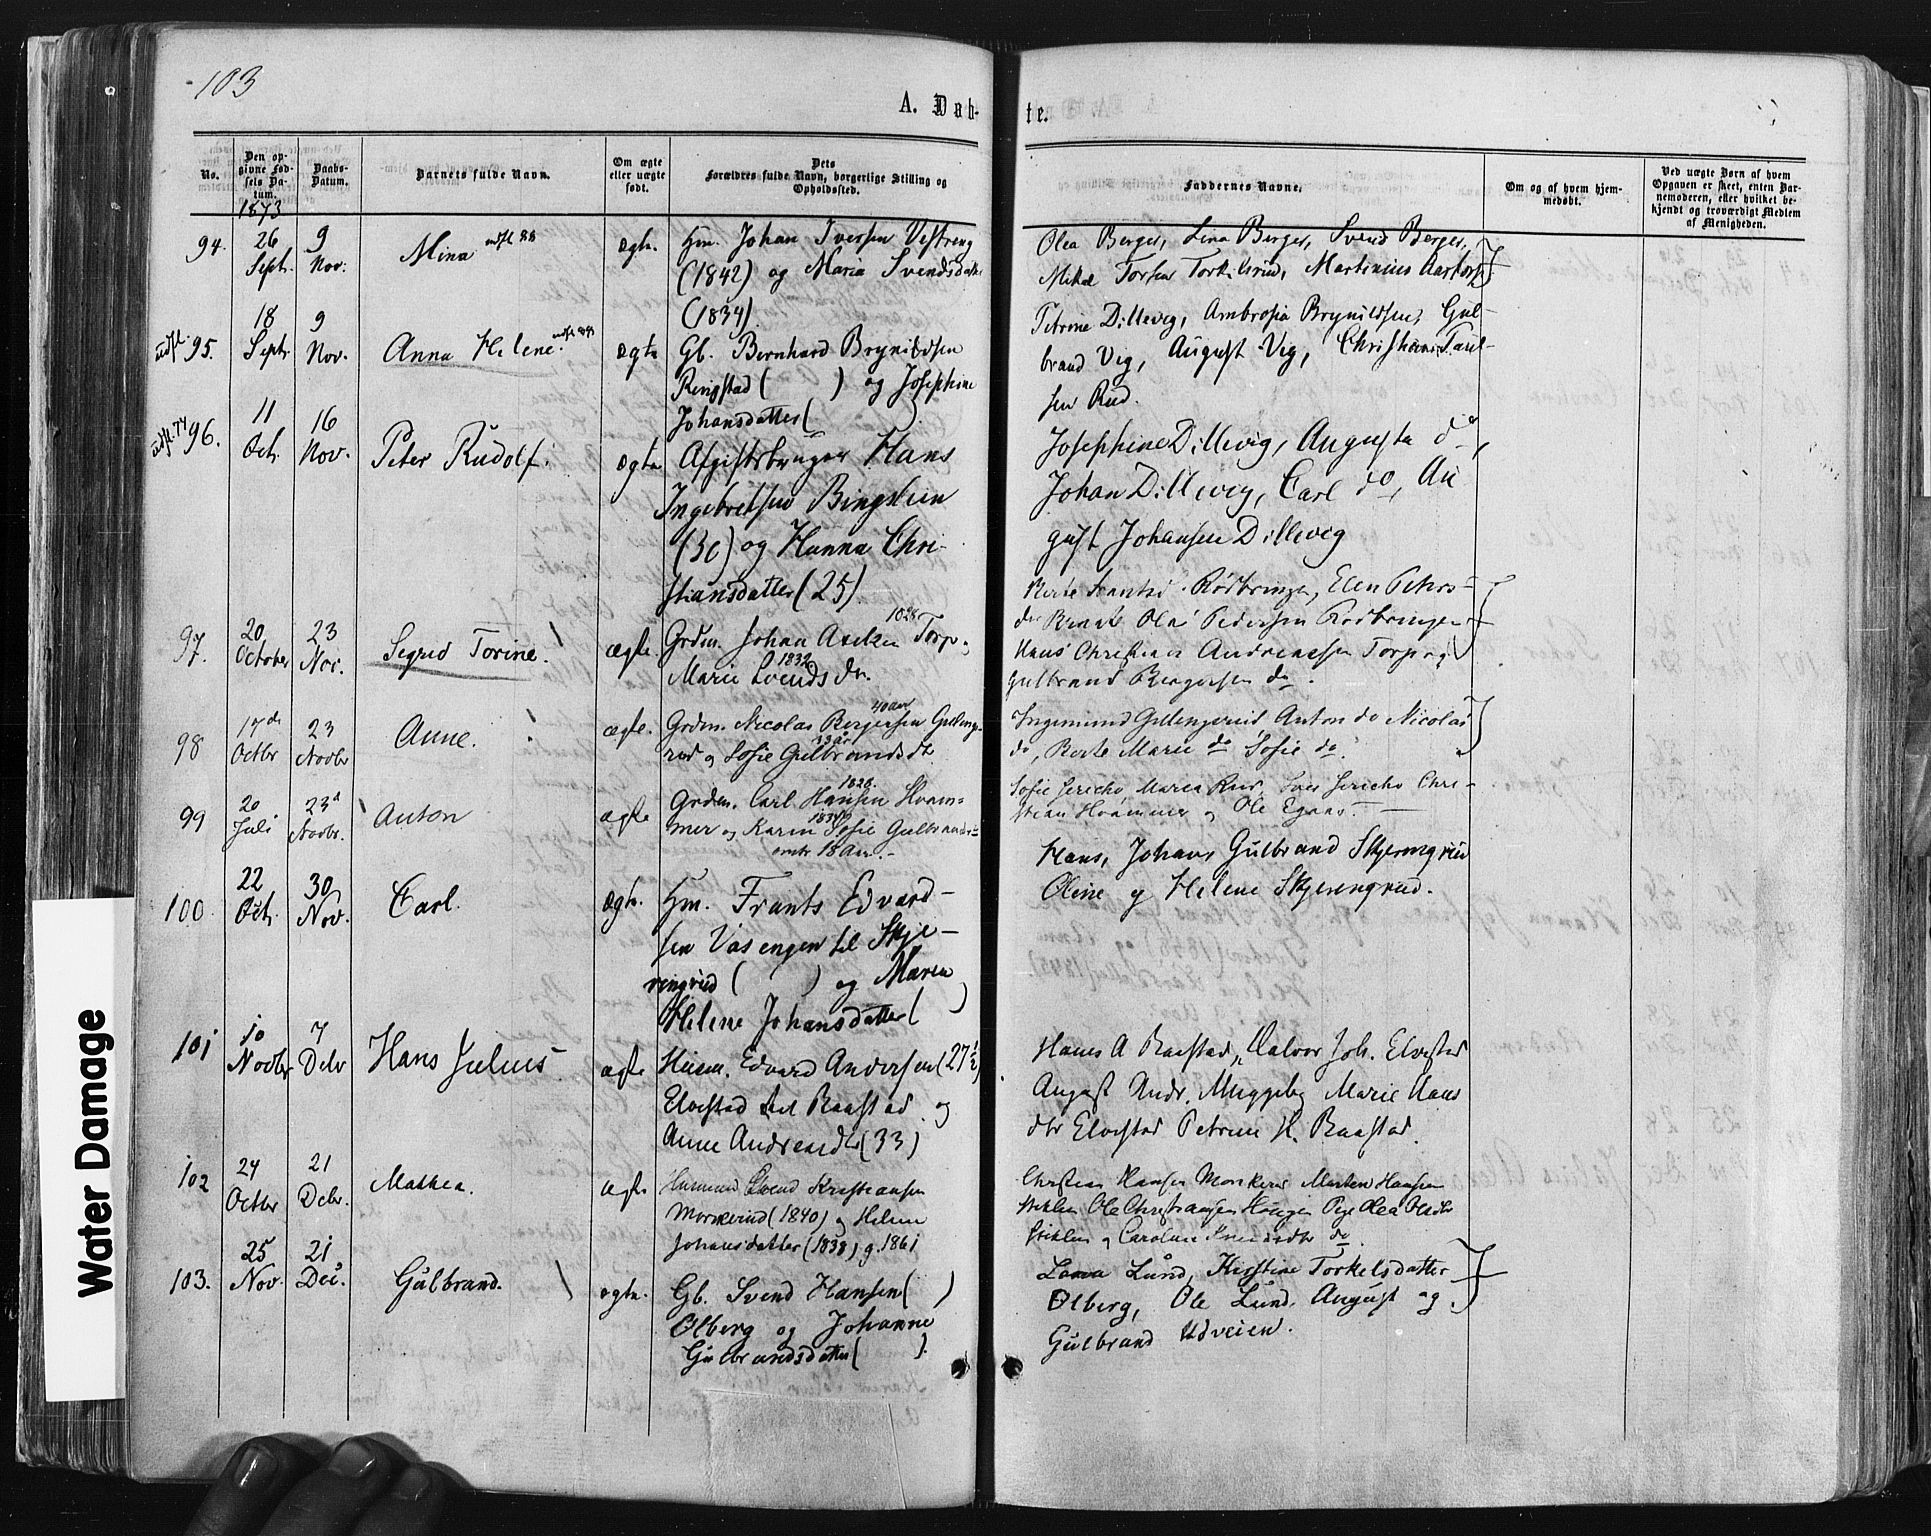 103
A. Døb-
te.
No.
Den op-
givne Fød-
sels Da-
tum.
Daabs-
Datum.
Barnets fulde Navn.
Om ægte
eller uægte
født.
Dets
Forældres fulde Navn, borgerlige Stilling og
Opholdssted.
Faddernes Navne.
Om og af hvem hjem-
medøbt.
Ved uægte Børn af hvem
Opgaven er skeet, enten Bar-
nemoderen, eller hvilket be-
kjendt og troværdigt Medlem
af Menigheden.
1873
94.
26
Sept.
9
Nov.
Mina
ægte.
Hm. Johan Iversen Vestreng
(1842) og Maria Svendsdatter
(1834)
Olea Berger, Lina Berger, Svend Berger,
Mikal Torsen Torkilsrud, Martinius Aastorp
95.
18
Sept.
9
Nov.
Anna Helene.
ægte
Gb. Bernhard Brynildsen
Ringstad ( ) og Josephine
Johansdatter (
Petrine Dillevig, Ambrosia Brynildsen, Gul-
brand Vig, August Vig, Christian Paul-
sen Rud.
udfl. 74 96.
11
Oct.
16
Nov.
Peter Rudolf.
ægte
Afgiftsbruger Hans
Ingebretsen Bingsteen
(30) og Hanna Chri-
stiansdatter (25).
Josephine Dillevig, Augusta do,
Johan Dillevig, Carl do, Au
gust Johansen Dillevig
97.
20
October
23
Nov.
Segrid Torine.
ægte.
Grdm. Johan Axelsen 1828 Torp og
Marie Svends dr. 1832
Berte Frantsd. Rødbringen, Elen Peters-
dr Ola Pedersen Rødbringen
Hans Christian Andreassen Torp og
Gulbrand Bergersen do.
98
17de
Octbr
23
Novbr
Anne.
ægte.
40 aar
Grdm. Nicolai Bergersen Gulleng-
rud og Sofie Gulbrandsdt
33 år
Ingemund Gullengerud Anton do Nicolai
do, Berte Marie do Sofie do.
99
20
Juli
23d
Novbr.
Anton
ægte
1828.
Grdm. Carl Hansen Hvam-
mer og Karen Sofie Gulbrands
omtr 18 Aar.
Sofie Jericho Maren Rud, Iver Jericho Chri-
stian Hvammer og Ole Egnas.
100
22
Oct.
30
Nov.
Carl.
ægte.
Hm. Frants Edvard-
sen Vasengen til Skje-
ringrud ( ) og Maren
Helene Johansdatter ( )
Hans, Johan, Gulbrand Skjerengrud
Oline og Helene Skjerengrud.
101
10
Novbr
7
Debr
Hans Julius
ægte
Husm. Edvard Andersen (27 1/2)
Elvestad til Raastad og
Anne Andreasdtr (33)
Hans A Raastad, Halvor Joh. Elvestad
August Andr. Muggeby Marie Hans
dtr Elvestad Petrine H. Raastad.
102
24
Octbr
21
Debr.
Mathea.
ægte
Husmand Svend Kristiansen
Morskerud (1840) og Helene
Johansdatter (1838) g. 1861
Christian Hansen Morskerud Morten Hansen
Stiklen Ole Christiansen Haugen Pige Olea Olsdtr
Stiklen og Caroline do
103.
25
Nov.
21
Dec.
Gulbrand.
ægte.
Gb. Svend Hansen ( )
Ølberg og Johanne
Gulbrandsdatter ( ).
Lova Lund, Kirstine Torkelsdatter
Ølberg, Ole Lund, August og
Gulbrand Udveien.
Water Damage